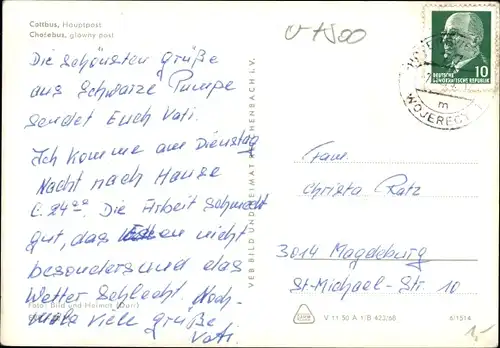 Cottbus, Hauptpost
Chośebus, głowny post
Die schönsten grüße
aus Schwarze Pumpe
sendet Euch Vati.
Ich komme am Dienstag
Nacht nach Hause
24⁰⁰. Die Arbeit schmeckt
gut, das Essen nicht
besonders und das
Wetter schlecht. Noch-
mals viele grüße
Vati.
Foto: Bild und Heimat (Durr)
VEB BILD UND HEIMAT REICHENBACH I. V.
V 1500
10
DEUTSCHE
DEMOKRATISCHE REPUBLIK
WOJERECY 1
m
Frau.
Christa Ratz
3014 Magdeburg
St-Michael-Str. 10
V 11 50 A 1/B 422/68
6/1514
1.-